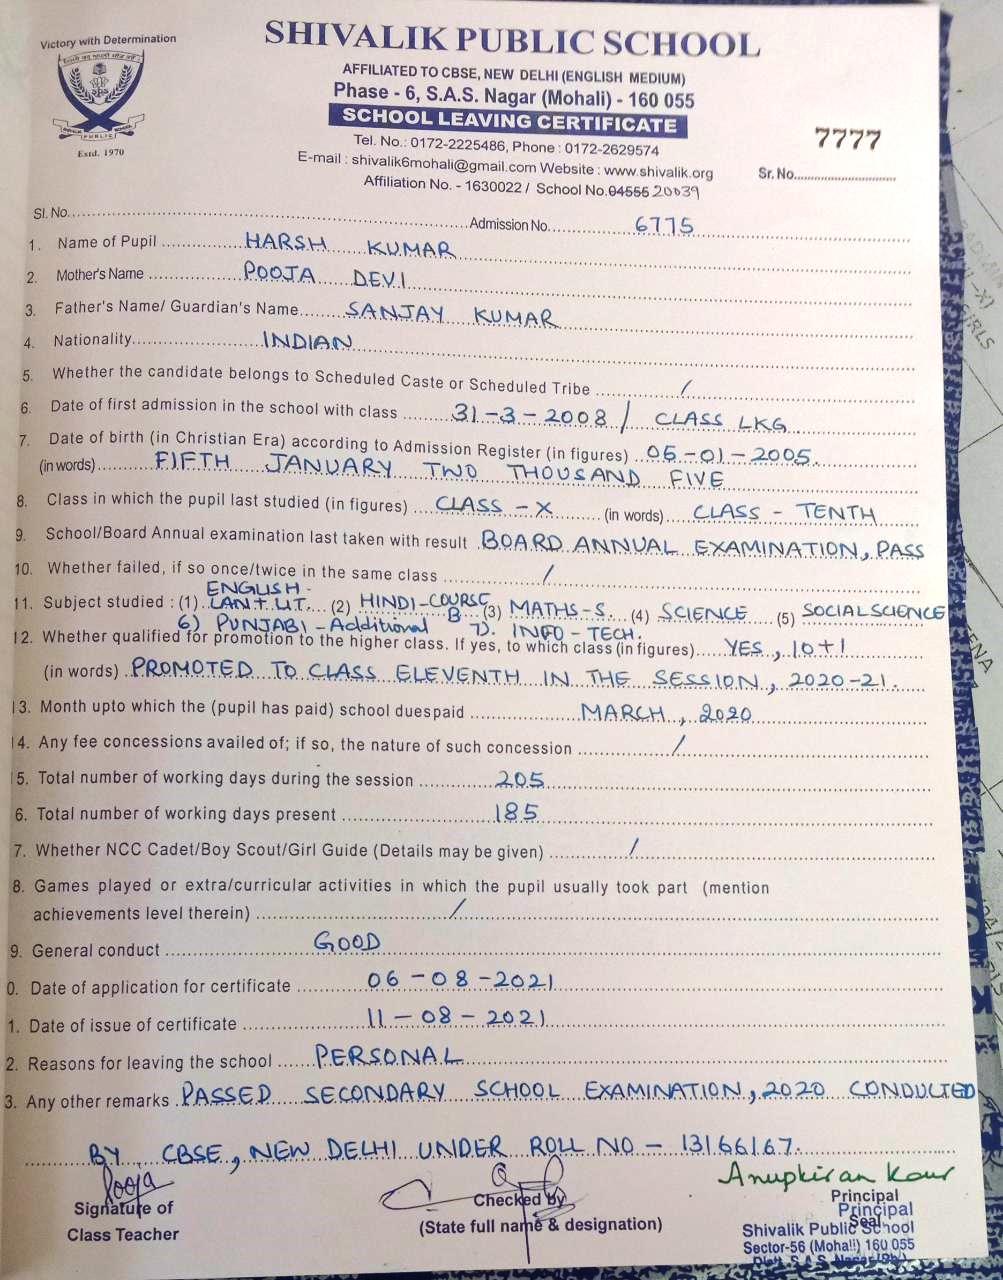 Victory with Determination
SHIVALIK PUBLIC SCHOOL
AFFILIATED TO CBSE, NEW DELHI (ENGLISH MEDIUM)
Phase - 6, S.A.S. Nagar (Mohali) - 160 055
SCHOOL LEAVING CERTIFICATE
Estd. 1970
7777
Tel. No.: 0172-2225486, Phone : 0172-2629574
E-mail : shivalik6mohali@gmail.com Website : www.shivalik.org
Sr. No.
Affiliation No. - 1630022 / School No. 04555 20039
Sl. No. Admission No. 6775
1. Name of Pupil HARSH KUMAR
2. Mother's Name POOJA DEVI
3. Father's Name/ Guardian's Name SANJAY KUMAR
4. Nationality INDIAN
5. Whether the candidate belongs to Scheduled Caste or Scheduled Tribe /
6. Date of first admission in the school with class 31-3-2008 / CLASS LKG
7. Date of birth (in Christian Era) according to Admission Register (in figures) 05-01-2005.
(in words) FIFTH JANUARY TWO THOUSAND FIVE
8. Class in which the pupil last studied (in figures) CLASS - X (in words) CLASS - TENTH
9. School/Board Annual examination last taken with result BOARD ANNUAL EXAMINATION, PASS
10. Whether failed, if so once/twice in the same class /
11. Subject studied : (1) ENGLISH - LAN + LIT. (2) HINDI-COURSE B (3) MATHS-S. (4) SCIENCE (5) SOCIAL SCIENCE
6) PUNJABI - Additional 7). INFO - TECH.
12. Whether qualified for promotion to the higher class. If yes, to which class (in figures) YES, 10+1
(in words) PROMOTED TO CLASS ELEVENTH IN THE SESSION, 2020-21.
13. Month upto which the (pupil has paid) school duespaid MARCH, 2020
14. Any fee concessions availed of; if so, the nature of such concession /
15. Total number of working days during the session 205
6. Total number of working days present 185
7. Whether NCC Cadet/Boy Scout/Girl Guide (Details may be given) /
8. Games played or extra/curricular activities in which the pupil usually took part (mention
achievements level therein) /
9. General conduct GOOD
0. Date of application for certificate 06-08-2021
1. Date of issue of certificate 11-08-2021
2. Reasons for leaving the school PERSONAL
3. Any other remarks PASSED SECONDARY SCHOOL EXAMINATION, 2020 CONDUCTED
BY CBSE, NEW DELHI UNDER ROLL NO - 13166167.
Pooja
Signature of
Class Teacher
Checked by
(State full name & designation)
Anupkiran Kaur
Principal
Principal
Seal
Shivalik Public School
Sector-56 (Mohali) 160 055
Distt. S.A.S. Nagar (Pb.)